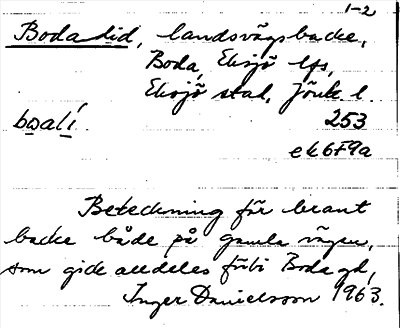 1-2
Bodalid, landsvägsbacke,
Boda, Eksjö lfs,
Eksjö stad, Jönk. l.
bωalí. 253
ek6f9a
Beteckning för brant
backe både på gamla vägen,
som gick alldeles förbi Boda gd,
Inger Danielsson 1963.